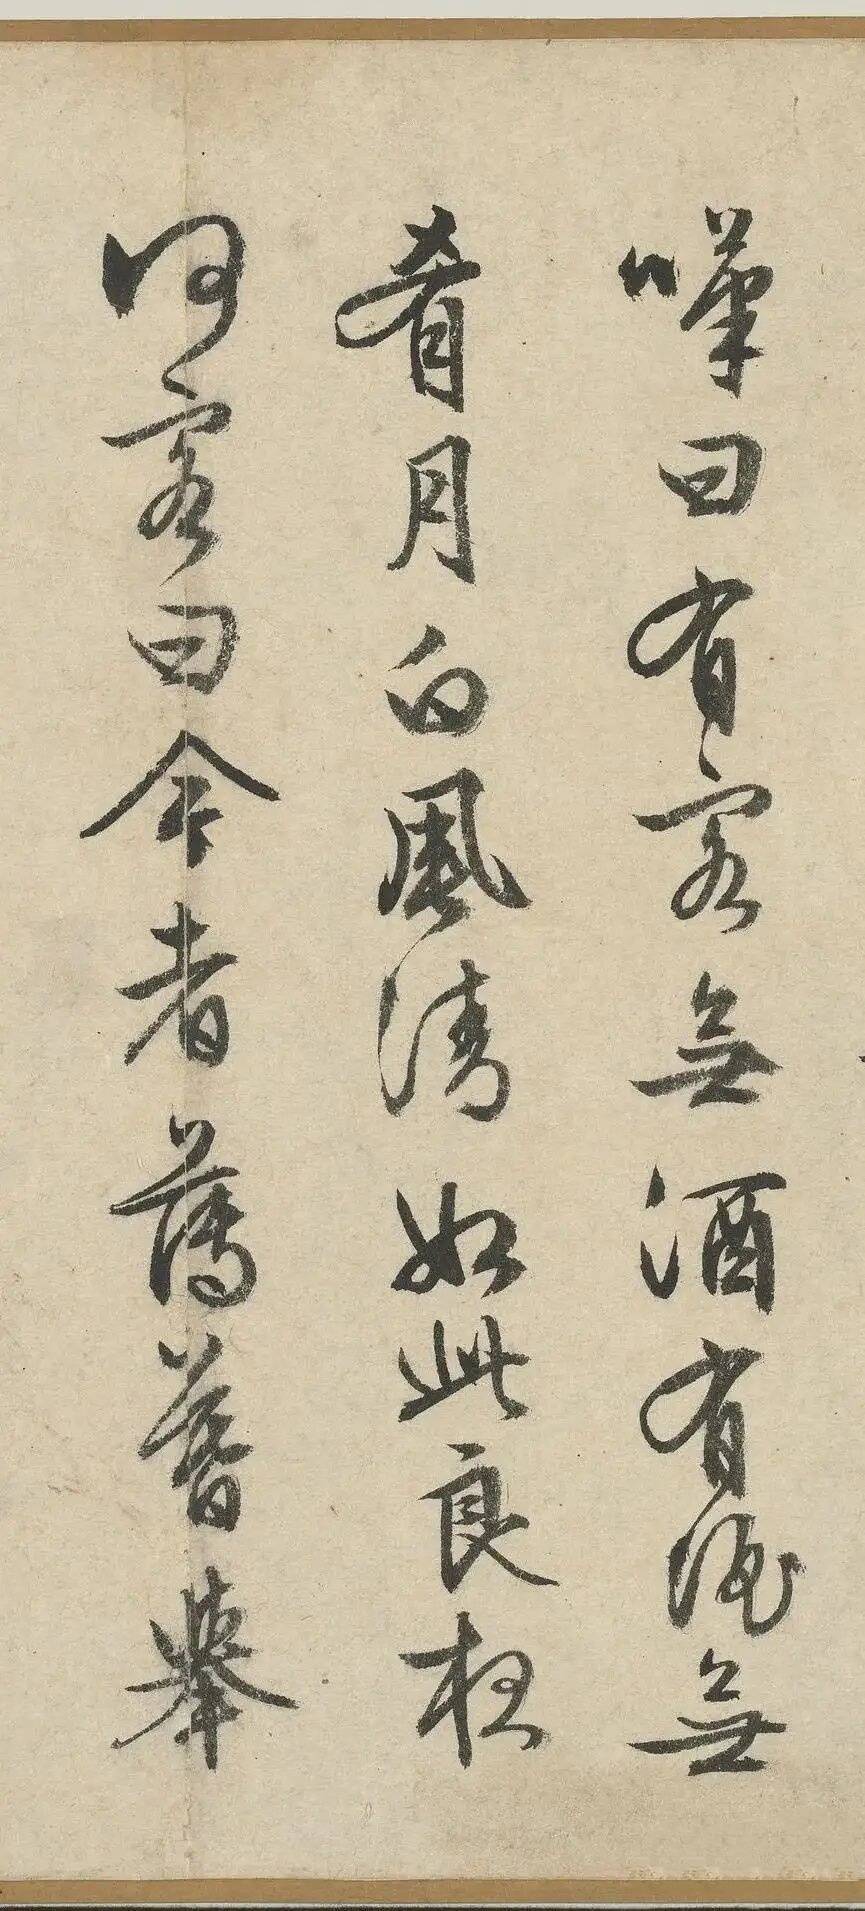 嘆曰有客無酒有酒無
肴月白風清如此良夜
何客曰今者薄暮舉